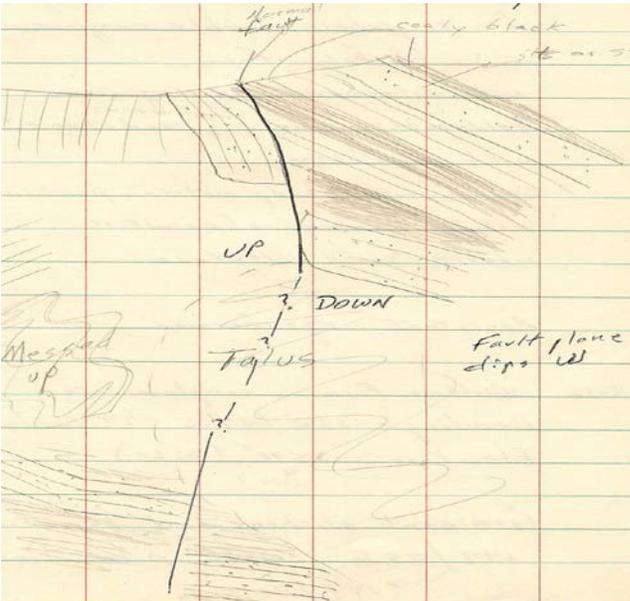 Normal
Fault
coaly black
UP
?
DOWN
?
Talus
Fault plane
dips W
Messed
up
?